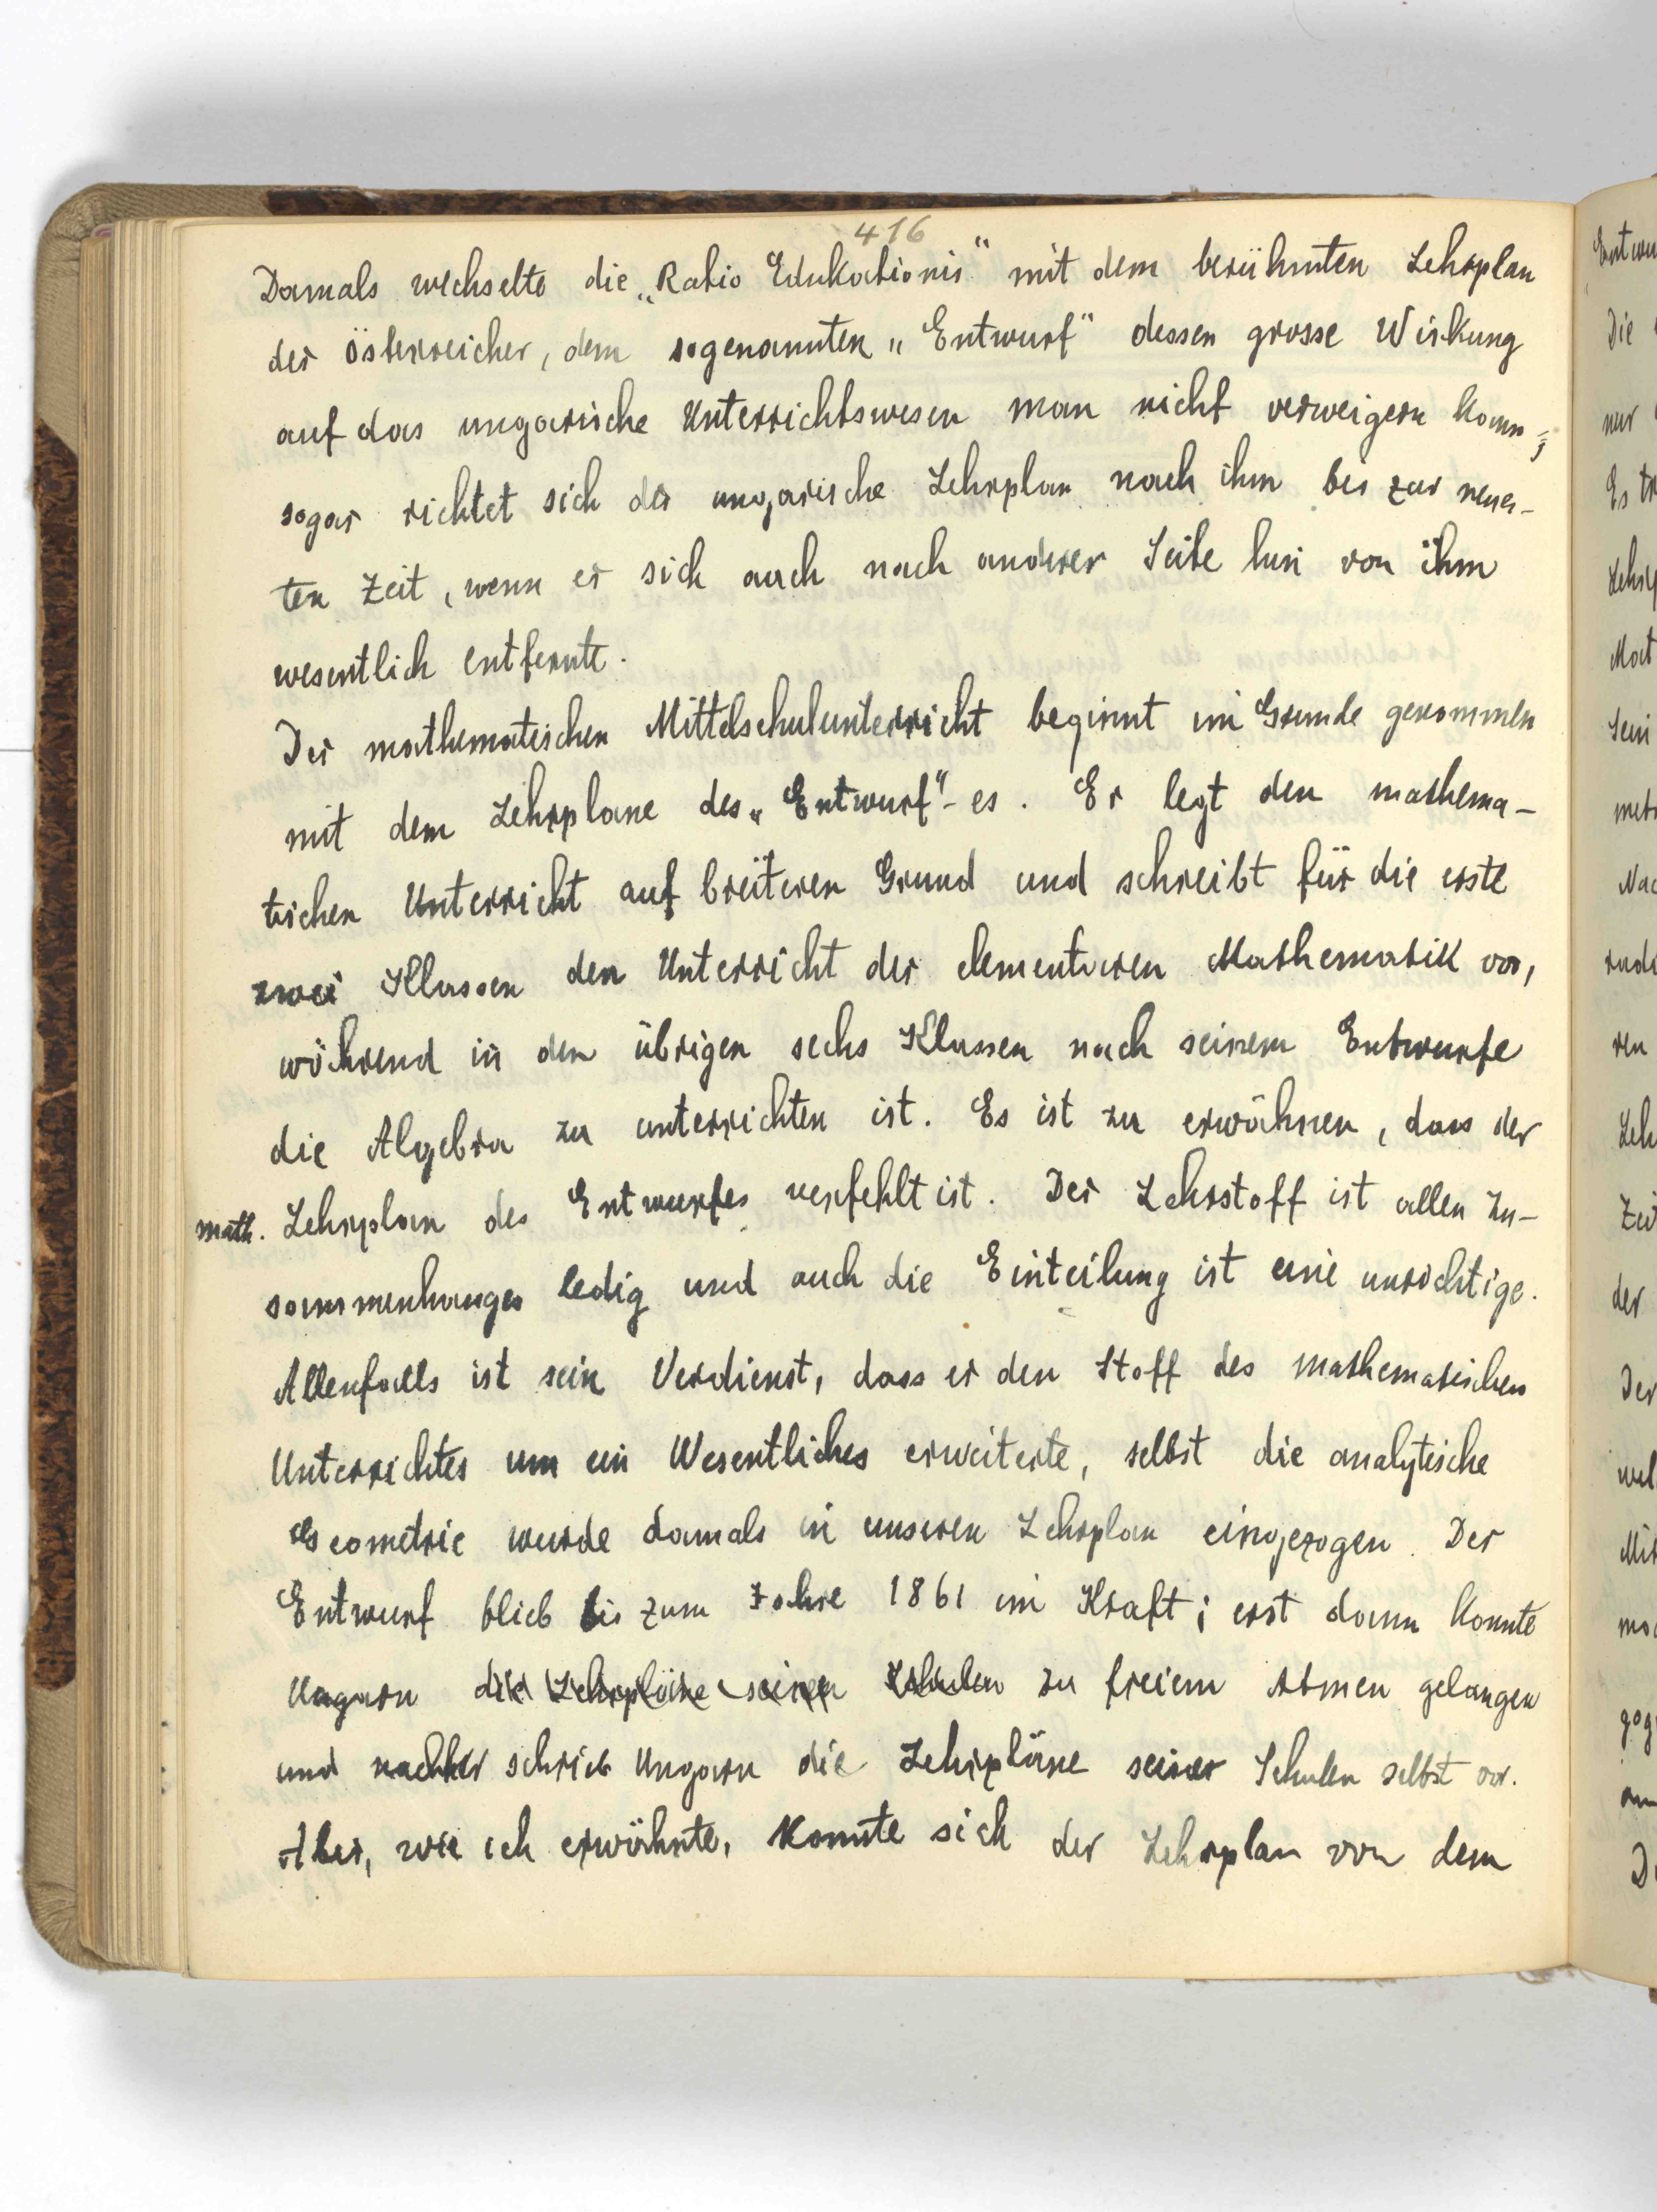 416
Damals wechselte die „Ratio Edukationis“ mit dem berühmten Lehrplan
der Österreicher, dem sogenannten „Entwurf“ dessen grosse Wirkung
auf das ungarische Unterrichtswesen man nicht verweigern kann;
sogar richtet sich der ungarische Lehrplan nach ihm bis zur neues-
ten Zeit, wenn er sich auch nach anderer Seite hin von ihm
wesentlich entfernte.
Der mathematischen Mittelschulunterricht beginnt im Grunde genommen
mit dem Lehrplane des „Entwurf“-es. Er legt den mathema-
tischen Unterricht auf breiteren Grund und schreibt für die erste
zwei Klassen den Unterricht der elementaren Mathematik vor,
während in den übrigen sechs Klassen nach seinem Entwurfe
die Algebra zu unterrichten ist. Es ist zu erwähnen, dass der
math. Lehrplan des Entwurfes verfehlt ist. Der Lehrstoff ist allen Zu-
sammenhanges ledig und auch die Einteilung ist eine unrichtige.
Allenfalls ist sein Verdienst, dass er den Stoff des mathematischen
Unterrichtes um ein Wesentliches erweiterte, selbst die analytische
Geometrie wurde damals in unseren Lehrplan eingezogen. Der
Entwurf blieb bis zum Jahre 1861 in Kraft; erst dann konnte
Ungarn die Lehrpläne seiner Schulen zu freiem Atmen gelangen
und nachher schrieb Ungarn die Lehrpläne seiner Schulen selbst vor.
Aber, wie ich erwähnte, konnte sich der Lehrplan von dem